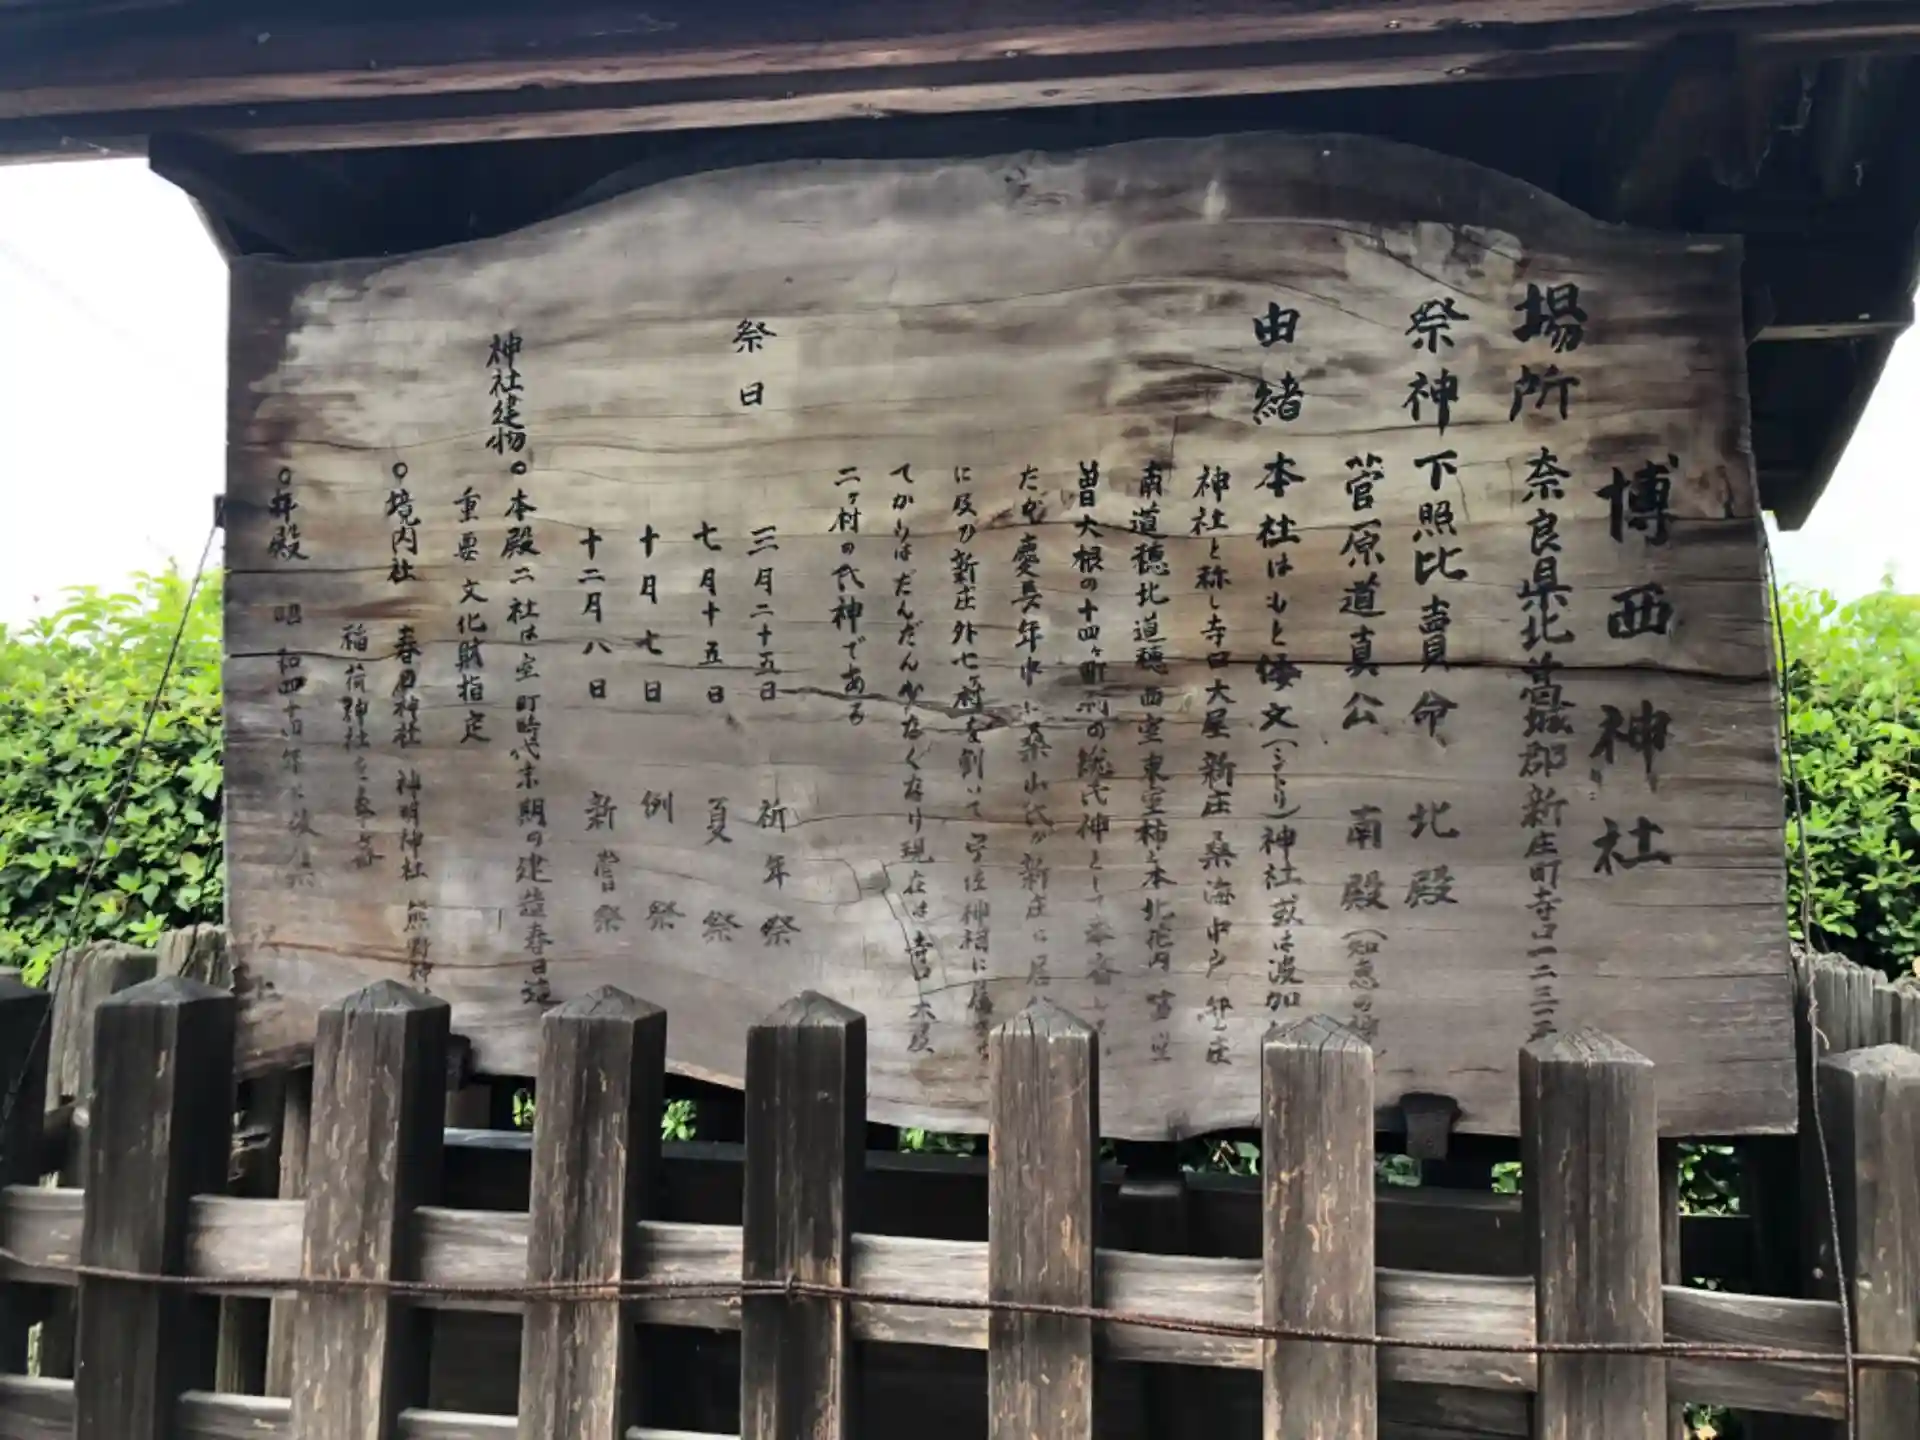 博西神社
場所 奈良県北葛城郡新庄町寺口一二三五
祭神 下照比賣命 北殿
菅原道真公 南殿（知恵の神）
由緒 本社はもと倭文（シトリ）神社或は波加仁
神社と称し寺口大屋新庄桑海中戸弁之庄
南道穂北道穂西室東室柿之本北花内
曽大根の十四ヶ町村の総氏神として奉斎
たが慶長年中に桑山氏が新庄に居
に及び新庄外七ヶ村を割いて
てからはだんだん少なくなり現在は寺口大屋
二ヶ村の氏神である
祭日
三月二十五日 祈年祭
七月十五日 夏祭
十月七日 例祭
十二月八日 新嘗祭
神社建物 ○本殿二社は室町時代末期の建造春日造
重要文化財指定
○境内社 春日神社 神明神社 熊野神
稲荷神社を
○拝殿 昭和四十四年